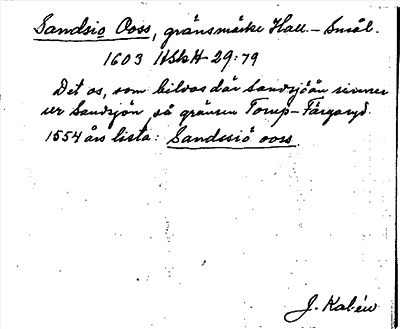 Sandsio Ooss, gränsmärke Hall.-Smål.
1603 HSkH-29:79
Det os, som bildas där Sandsjöån rinner
ur Sandsjön, på gränsen Torup-Färgaryd.
1554 års lista: Sandssiö ooss.
J. Kalén